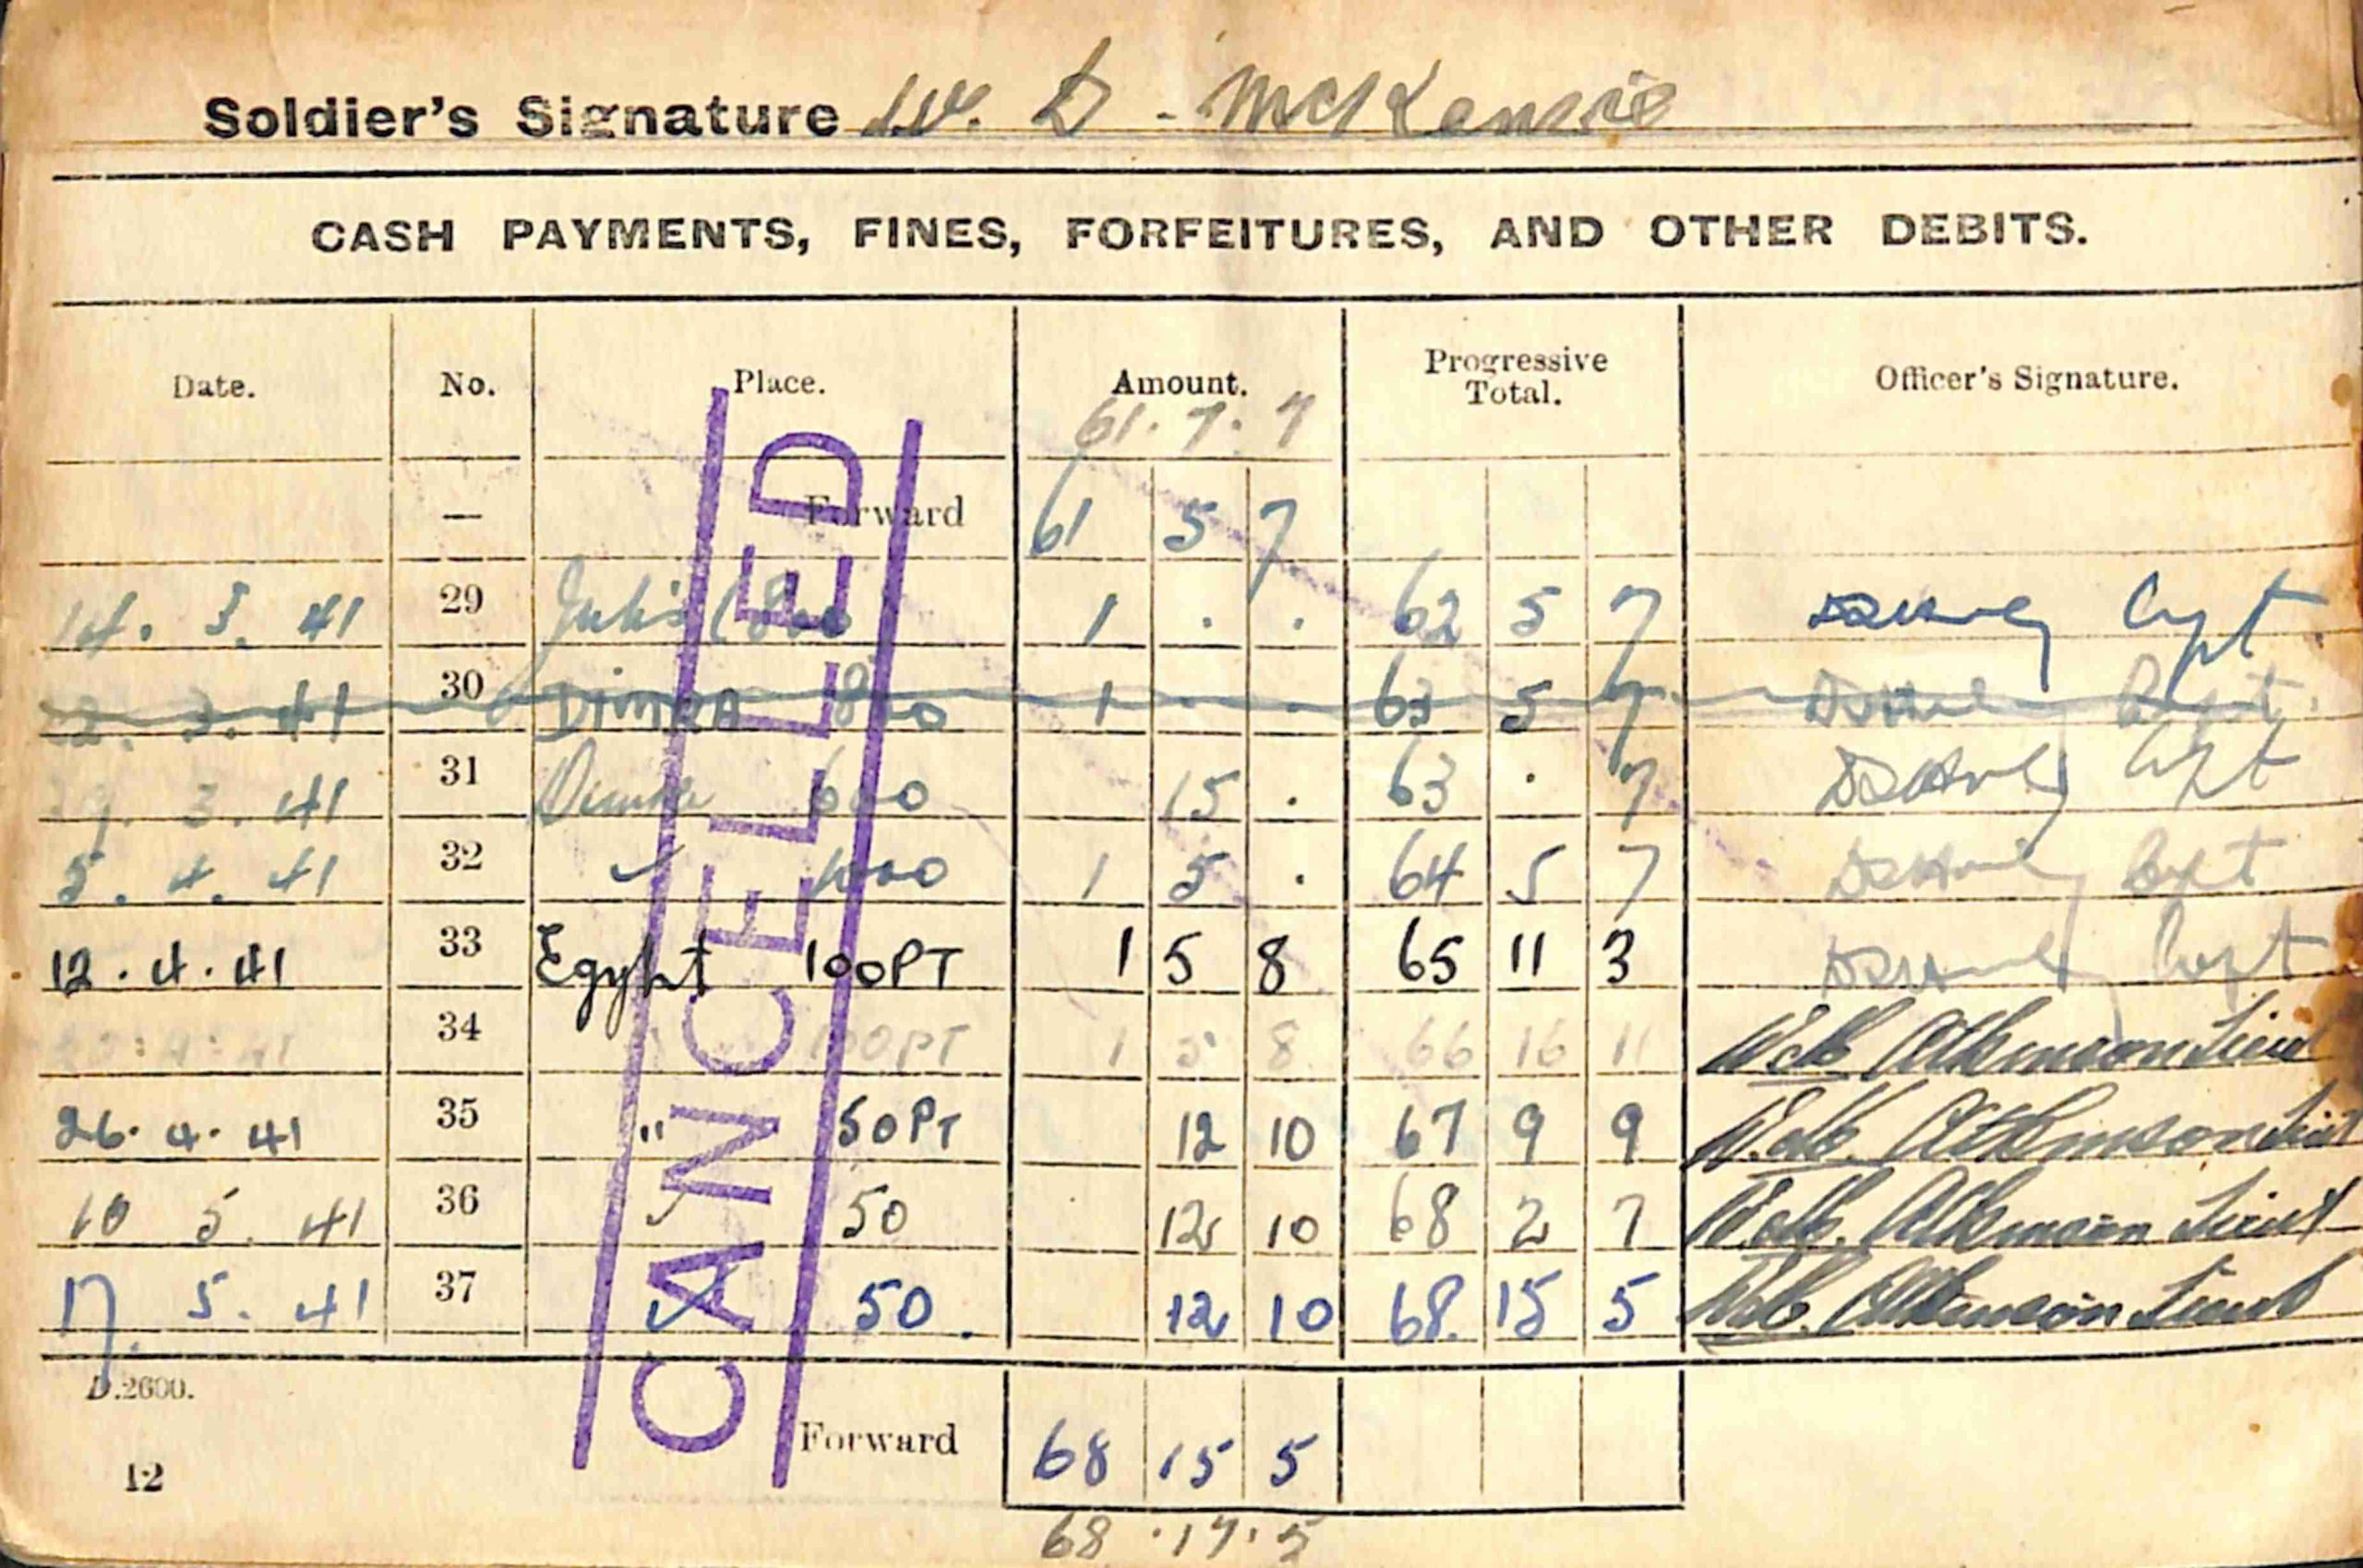 Soldier's Signature W. D. McKenzie
CASH PAYMENTS, FINES, FORFEITURES, AND OTHER DEBITS.
Date. No. Place. Amount. Progressive Total. Officer's Signature.
61. 7. 7
— Forward 61 5 7
14. 3. 41 29 Julis 800 1 . . 62 5 7 Capt
22. 3. 41 30 DIMRA 800 1 . . 63 5 7 Capt.
29. 3. 41 31 Dimra 600 15 . 63 . 7 Capt
5. 4. 41 32 1000 1 5 . 64 5 7 Capt
12.4.41 33 Egypt 100PT 1 5 8 65 11 3 Capt
34 100PT 1 5 8 66 16 11 Atkinson Lieut
26.4.41 35 " 50PT 12 10 67 9 9 Atkinson Lieut
10 5. 41 36 50 12 10 68 2 7 Atkinson Lieut
17. 5. 41 37 50. 12 10 68. 15 5 Atkinson Lieut
CANCELLED
D.2600.
Forward 68 15 5
12
68 . 17 . 5